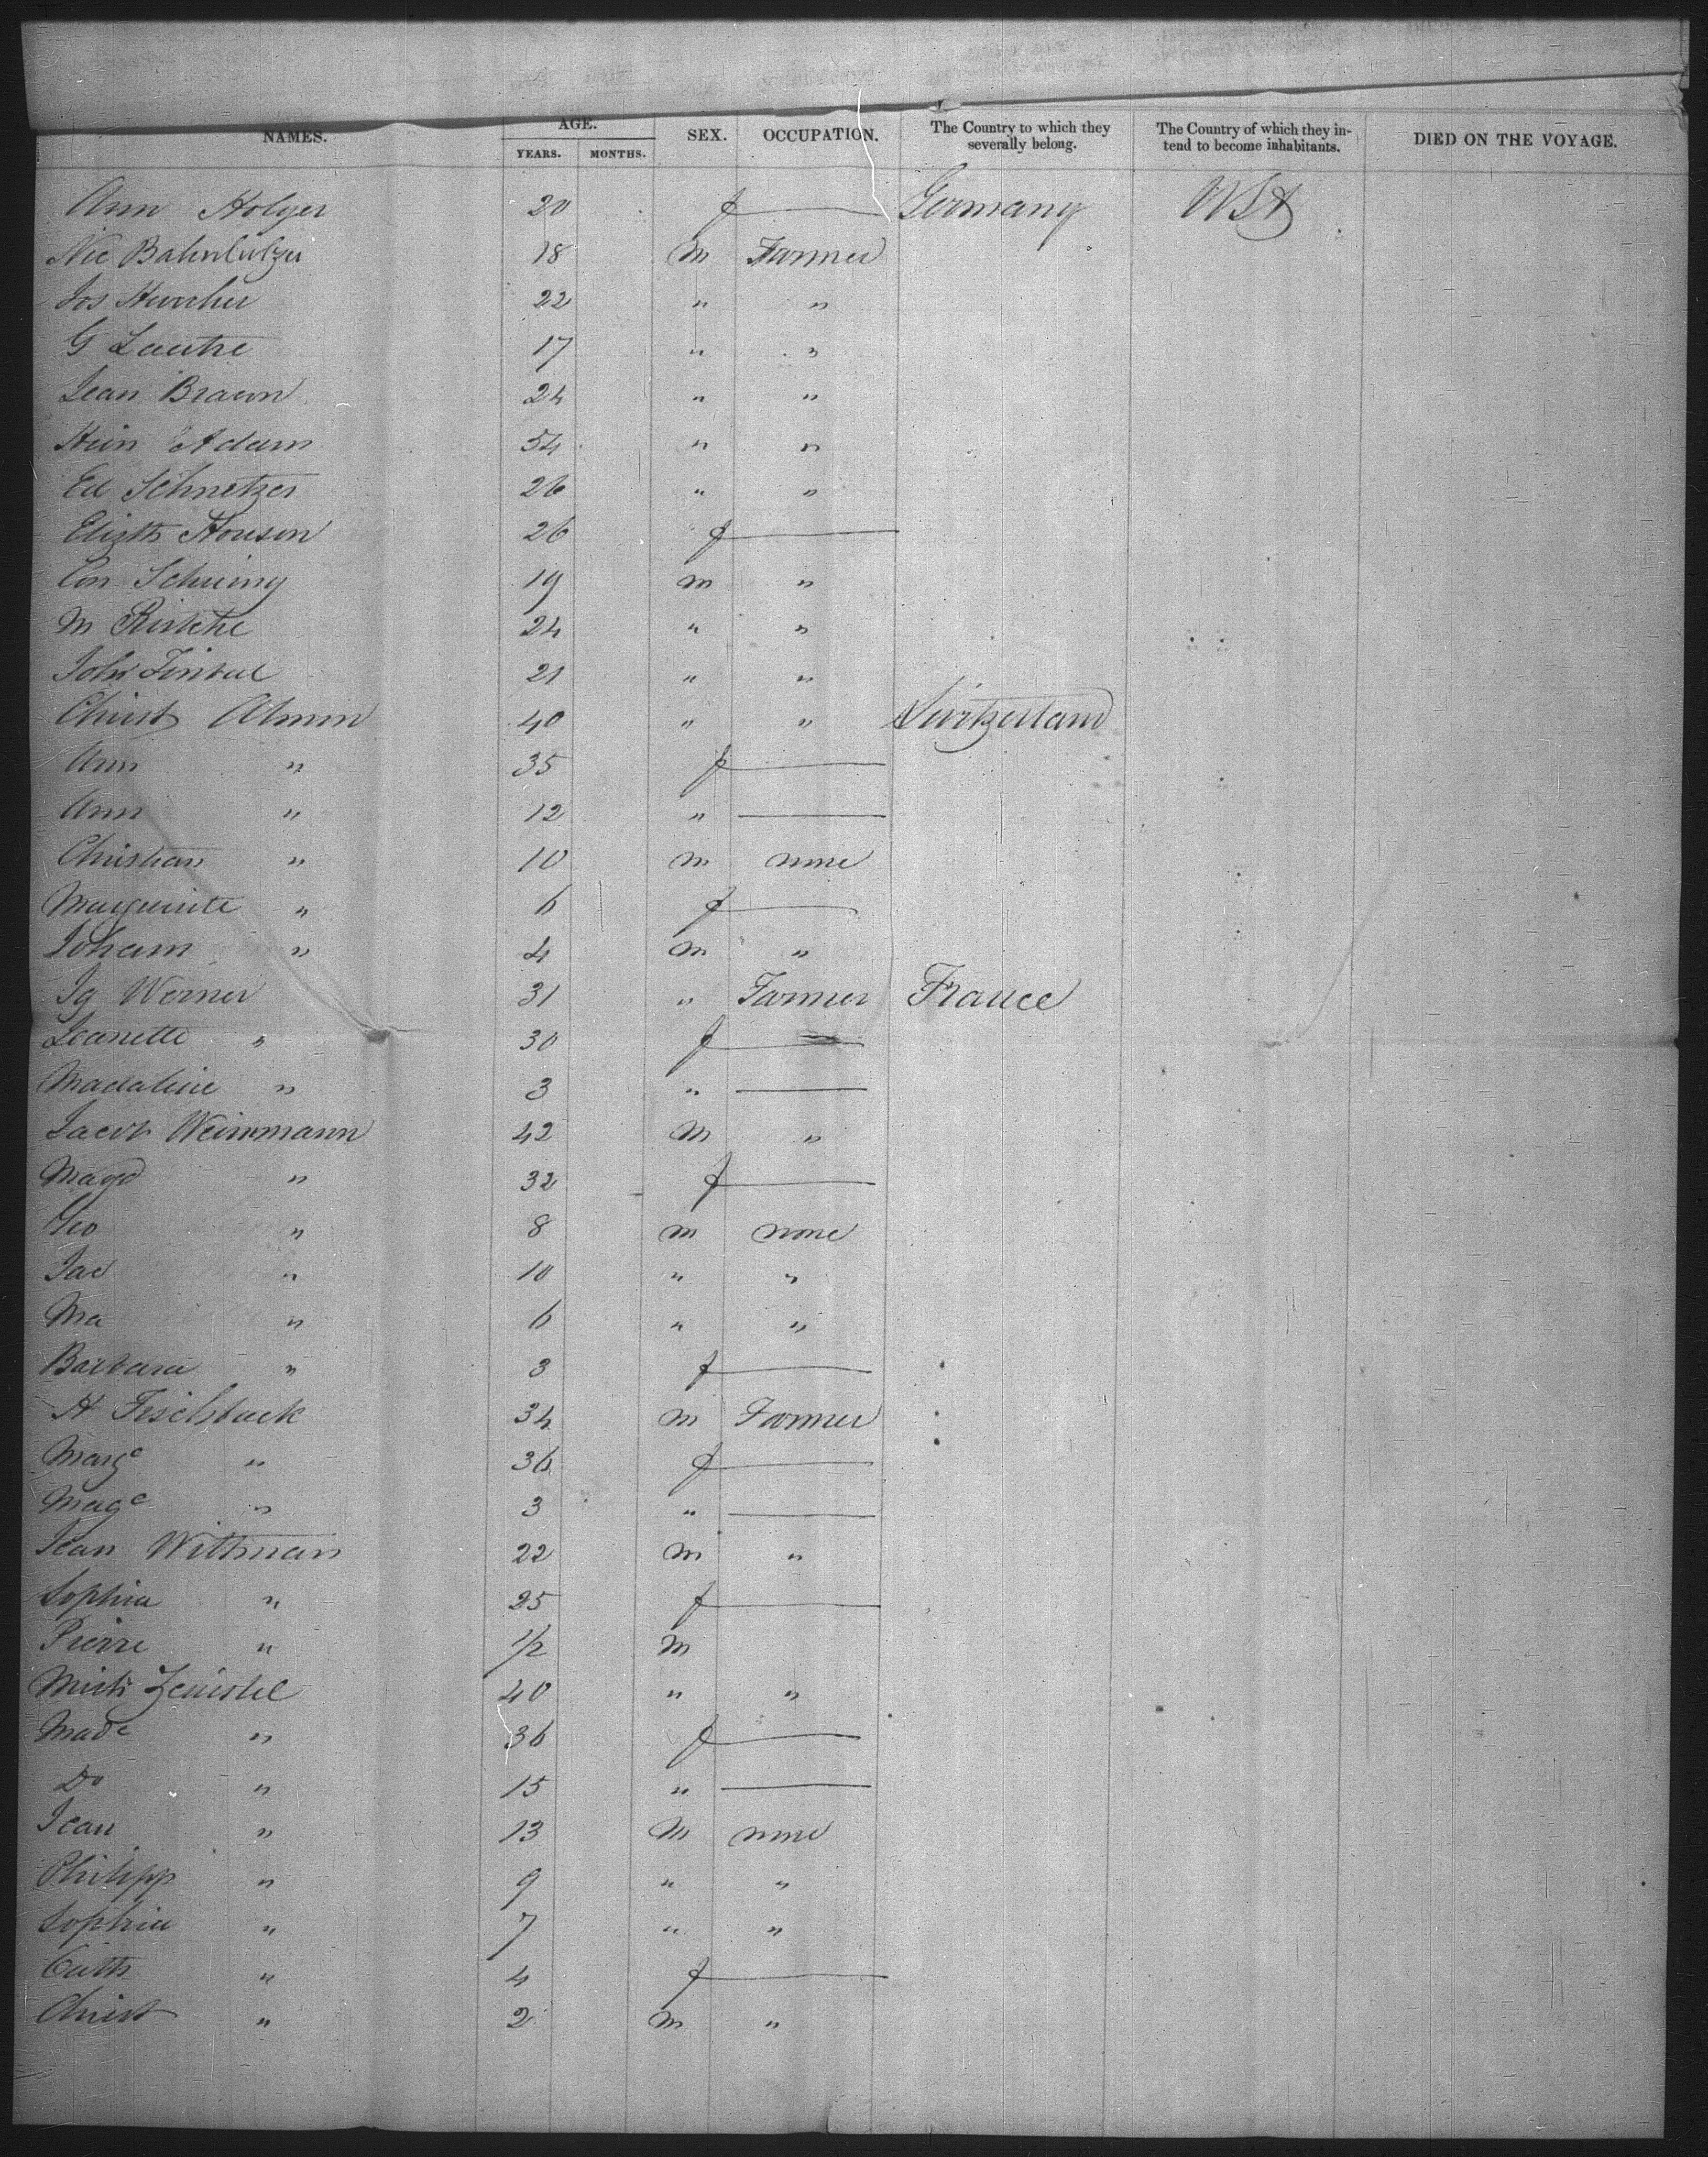 NAMES. AGE. SEX. OCCUPATION. The Country to which they severally belong. The Country of which they intend to become inhabitants. DIED ON THE VOYAGE.
YEARS. MONTHS.
Ann Holger 20 f Germany USA
Nic 18 m Farmer
Jos 22 " "
G Lautre 17 " "
Jean Braun 24 " "
Hein Adam 54 " "
Ed Schnetzer 26 " "
Elizth Houson 26 f
Con 19 m "
M 24 " "
John 21 " "
Christ Almin 40 " " Switzerland
Ann " 35 f
Ann " 12 "
Christian " 10 m none
Marguerite " 6 f
Johann " 4 m "
Ig Werner 31 " Farmer France
Jeanette " 30 f
Madaline " 3 "
Jacob Weinmann 42 m "
Magd " 32 f
Geo " 8 m none
Jac " 10 " "
Ma " 6 " "
Barbara " 3 f
H Fischback 34 m Farmer
Marge " 36 f
Mage " 3 "
Jean Wittman 22 m "
Sophia " 25 f
Pierre " 1/2 m
Mich 40 " "
Made " 36 f
Do " 15 "
Jean " 13 m none
Philipp " 9 " "
Sophia " 7 " "
Cath " 4 f
Christ " 2 m "